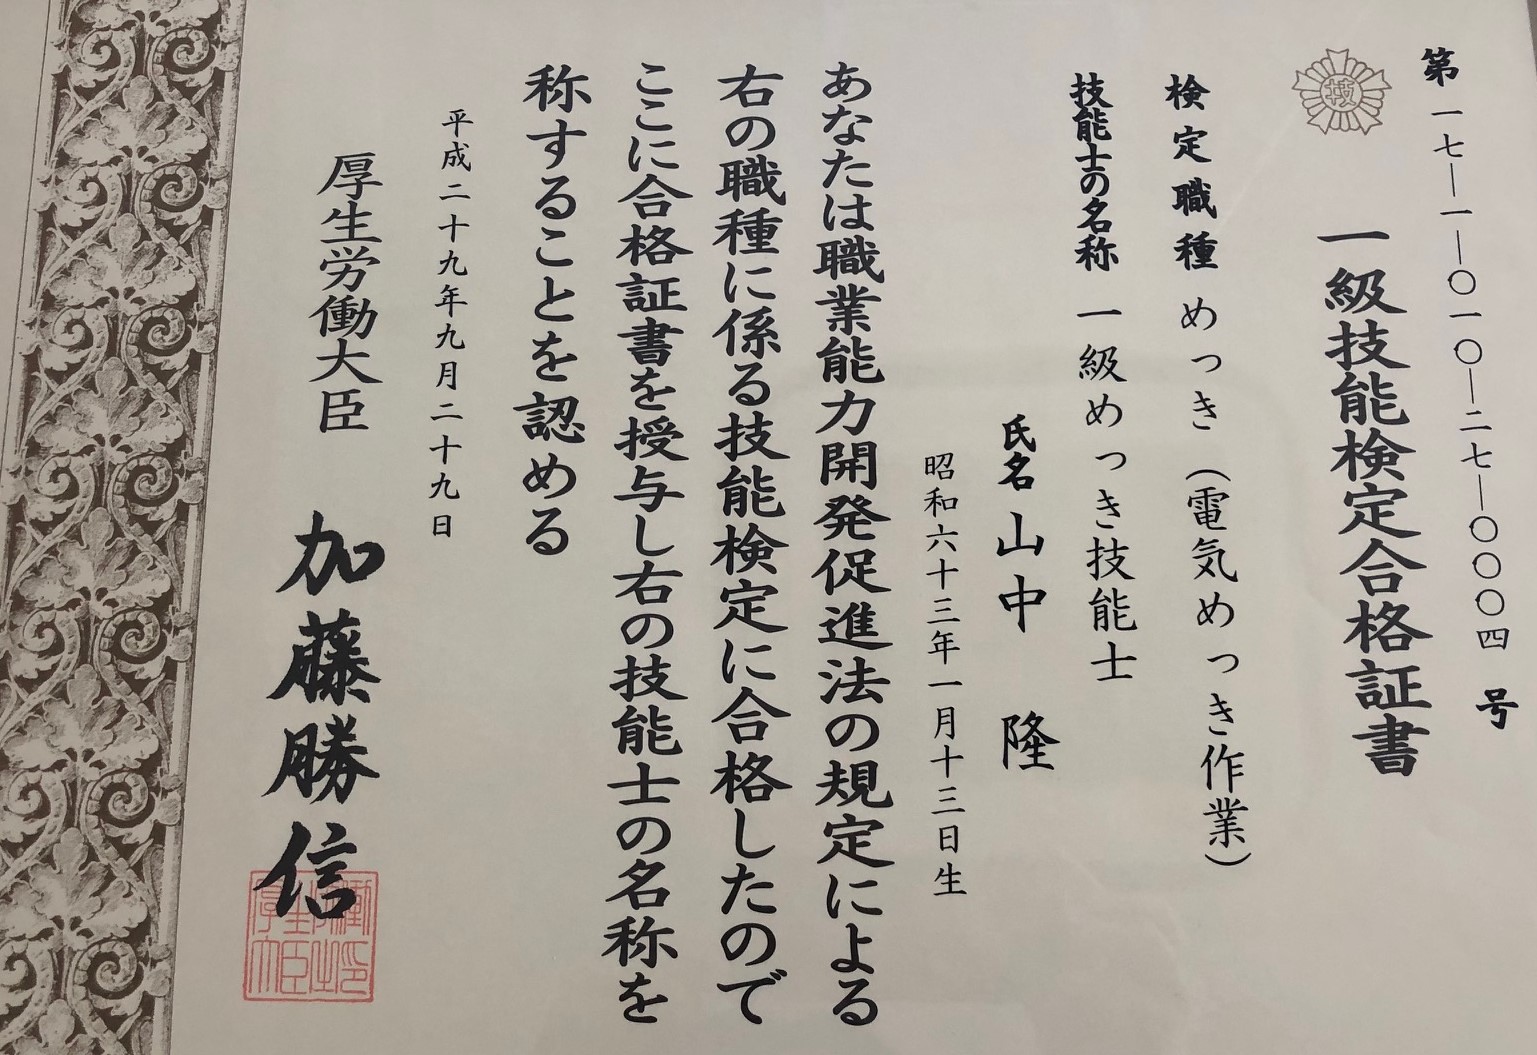 第一七―一―〇一〇―二七―〇〇〇四号
一級技能検定合格証書
技
検定職種 めっき（電気めっき作業）
技能士の名称 一級めっき技能士
氏名 山中 隆
昭和六十三年一月十三日生
あなたは職業能力開発促進法の規定による
右の職種に係る技能検定に合格したので
ここに合格証書を授与し右の技能士の名称を
称することを認める
平成二十九年九月二十九日
厚生労働大臣 加藤勝信